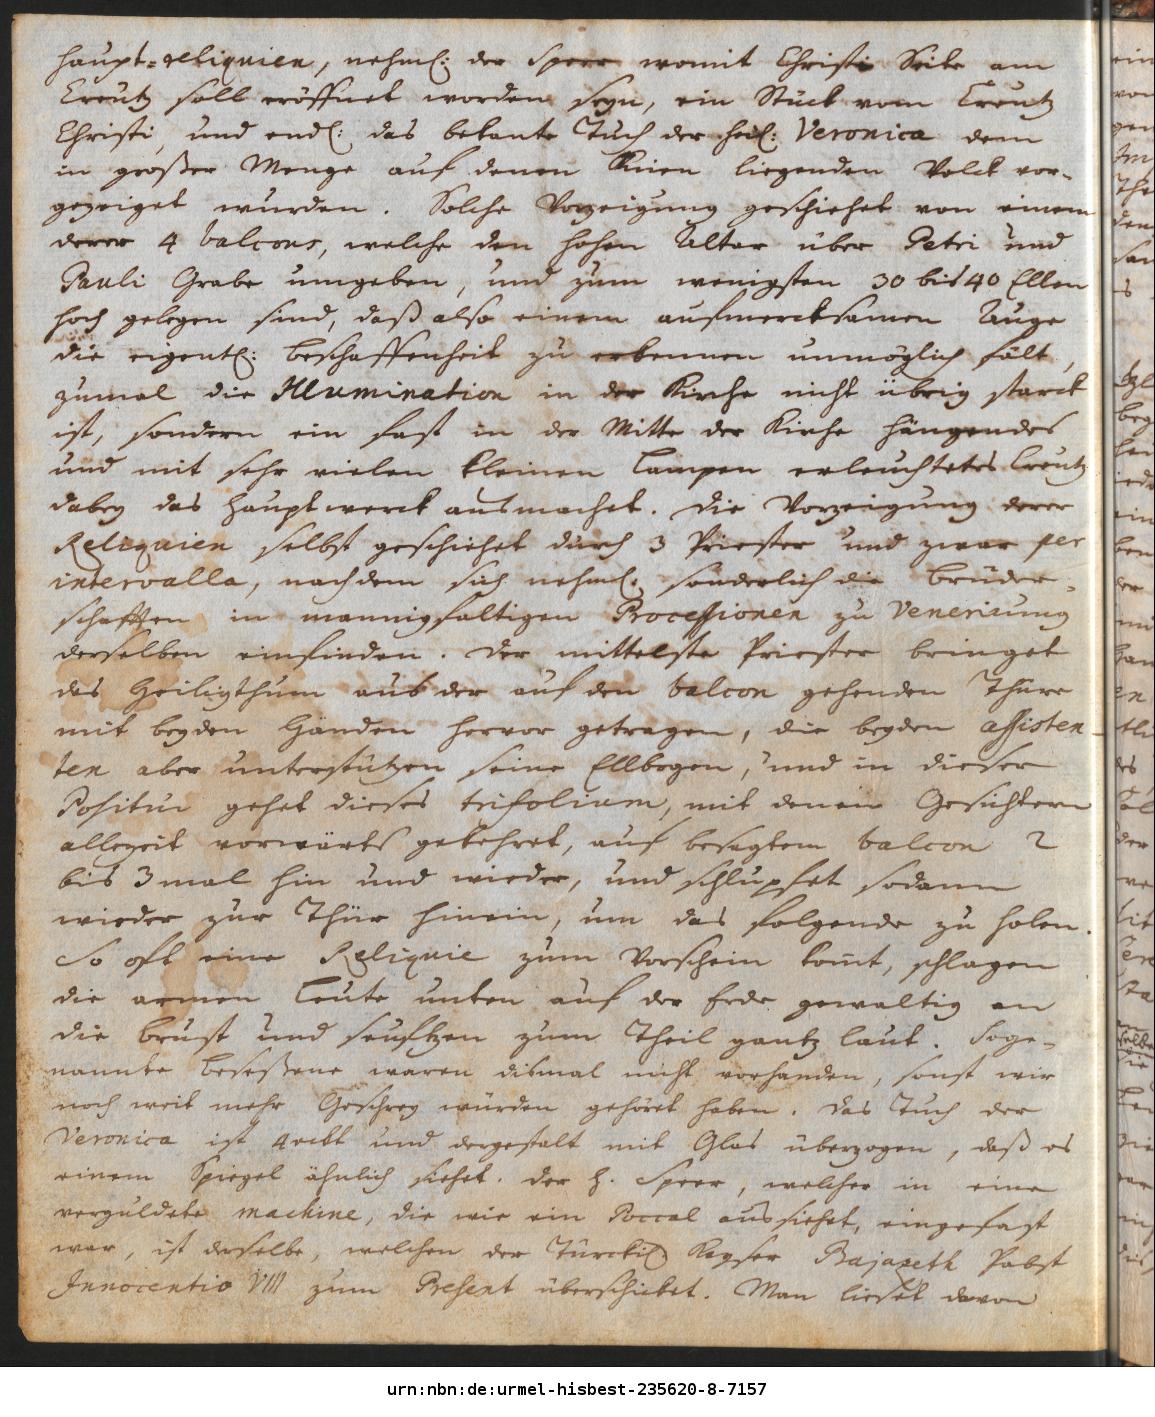 haupt=reliquien, nehml: der Speer womit Christi Seite am
Creutz soll eröffnet worden seyn, ein Stück vom Creutz
Christi, und endl: das bekante Tuch der heil: Veronica dem
in großer Menge auf denen Knien liegenden Volck vor-
gezeiget wurden. Solche Vorzeigung geschiehet von einem
derer 4 balcons, welche den hohen Altar über Petri und
Pauli Grabe umgeben, und zum wenigsten 30 bis 40 Ellen
hoch gelegen sind, daß also einem aufmercksamen Auge
die eigentl: Beschaffenheit zu erkennen unmöglich fält,
zumal die Illumination in der Kirche nicht übrig starck
ist, sondern ein fast in der Mitte der Kirche hängendes
und mit sehr vielen kleinen Lampen erleuchtetes Creutz
dabey das Hauptwerck ausmachet. Die Vorzeigung derer
Reliquien selbst geschiehet durch 3 Priester und zwar per
intervalla, nachdem sich nehml: sonderlich die Brüder-
schafften in mannigfaltigen Processionen zu Venerirung
derselben einfinden. Der mittelste Priester bringet
das Heiligthum aus der auf den balcon gehenden Thüre
mit beyden Händen hervor getragen, die beyden assisten-
ten aber unterstützen seine Ellbogen, und in dieser
Positur gehet dieses trifolium, mit denen Gesichtern
allezeit vorwärts gekehret, auf besagtem balcon 2
bis 3 mal hin und wieder, und schlupfet sodann
wieder zur Thür hinein, um das folgende zu holen.
So oft eine Reliquie zum Vorschein komt, schlagen
die armen Leute unten auf der Erde gewaltig an
die Brust und seufftzen zum Theil gantz laut. Soge-
nannte Beseßene waren diemal nicht vorhanden, sonst wir
noch weit mehr Geschrey würden gehöret haben. Das Tuch der
Veronica ist 4eckt und dergestalt mit Glas überzogen, daß es
einem Spiegel ähnlich siehet. Der h. Speer, welcher in eine
vergüldete machine, die wie ein Poccal aussiehet, eingefast
war, ist derselbe, welchen der Türckis. Kayser Bajazeth Pabst
Innocentio VIII zum Present überschicket. Man lieset davon
urn:nbn:de:urmel-hisbest-235620-8-7157